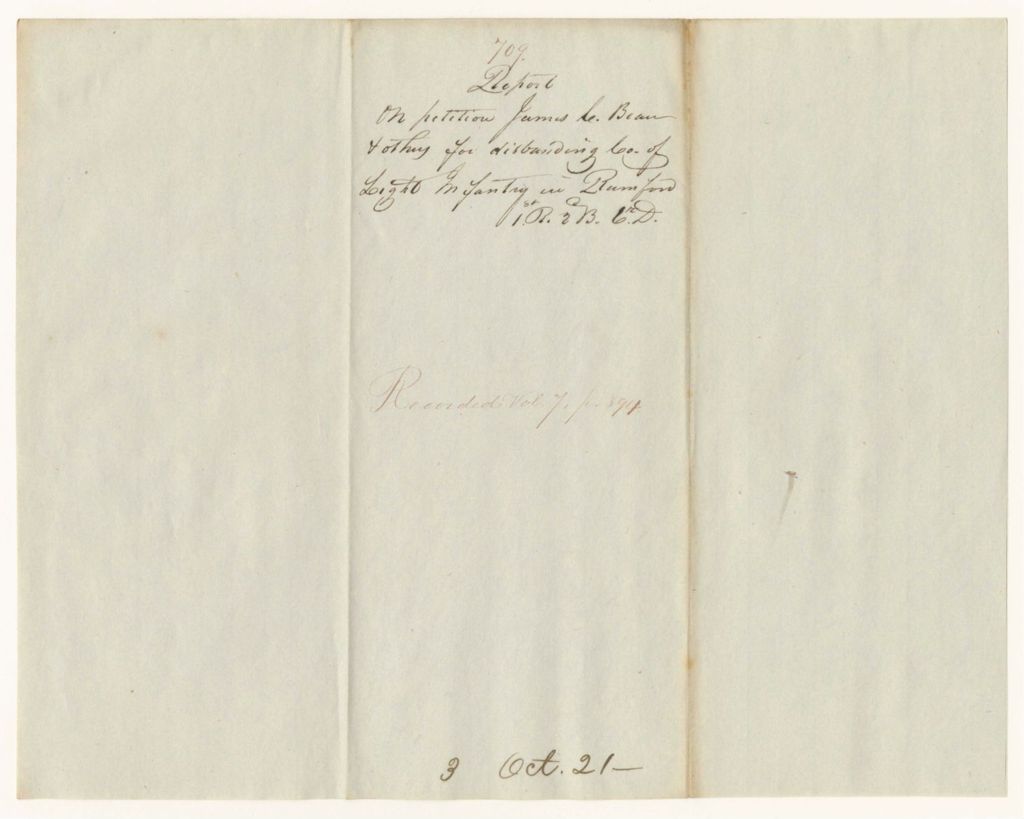 709.
Report
On petition James C. Bean
& others for disbanding Co. of
Light Infantry in Rumford
1st R. 2d B. 6th D.
Recorded Vol. 7, p. 894
3 Oct. 21—